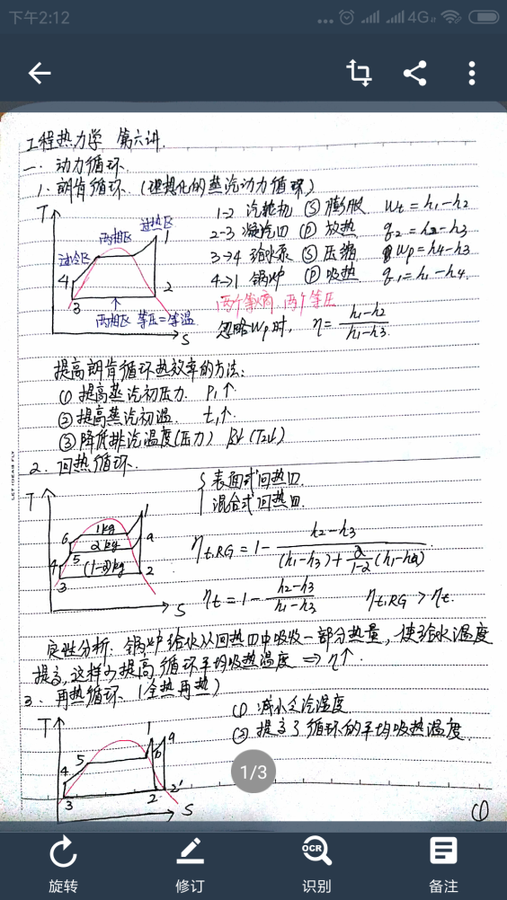 下午2:12
... 4G
工程热力学 第六讲.
一. 动力循环.
1. 朗肯循环. (理想化的蒸汽动力循环)
T
过冷区 两相区 过热区 1
4
3
2
S
两相区 等压=等温
1-2 汽轮机 Ⓢ 膨胀 Wt = h1-h2
2-3 凝汽器 Ⓟ 放热 q2 = h2-h3
3→4 给水泵 Ⓢ 压缩 Wp = h4-h3
4→1 锅炉 Ⓟ 吸热 q1 = h1-h4.
两个等熵, 两个等压
忽略Wp时, η = (h1-h2)/(h1-h3).
提高朗肯循环热效率的方法:
① 提高蒸汽初压力. P1↑
② 提高蒸汽初温. t1↑.
③ 降低排汽温度(压力) P2↓ (T2↓)
2. 回热循环.
{ 表面式回热器.
混合式回热器.
T
1
6 1kg
a
5 αkg
4 (1-α)kg
3
2
S
ηt,RG = 1 - (h2-h3)/((h1-h3)+α/(1-α)(h1-ha))
ηt = 1 - (h2-h3)/(h1-h3) ηt,RG > ηt.
定性分析. 锅炉给水从回热器中吸收一部分热量, 使给水温度
提高, 这样可提高循环平均吸热温度 ⇒ η↑.
3. 再热循环. (全热再热)
① 减小乏汽湿度.
② 提高了循环的平均吸热温度.
T
1 a
5 b
4
3 2 2'
S
1/3
①
旋转 修订 OCR 识别 备注